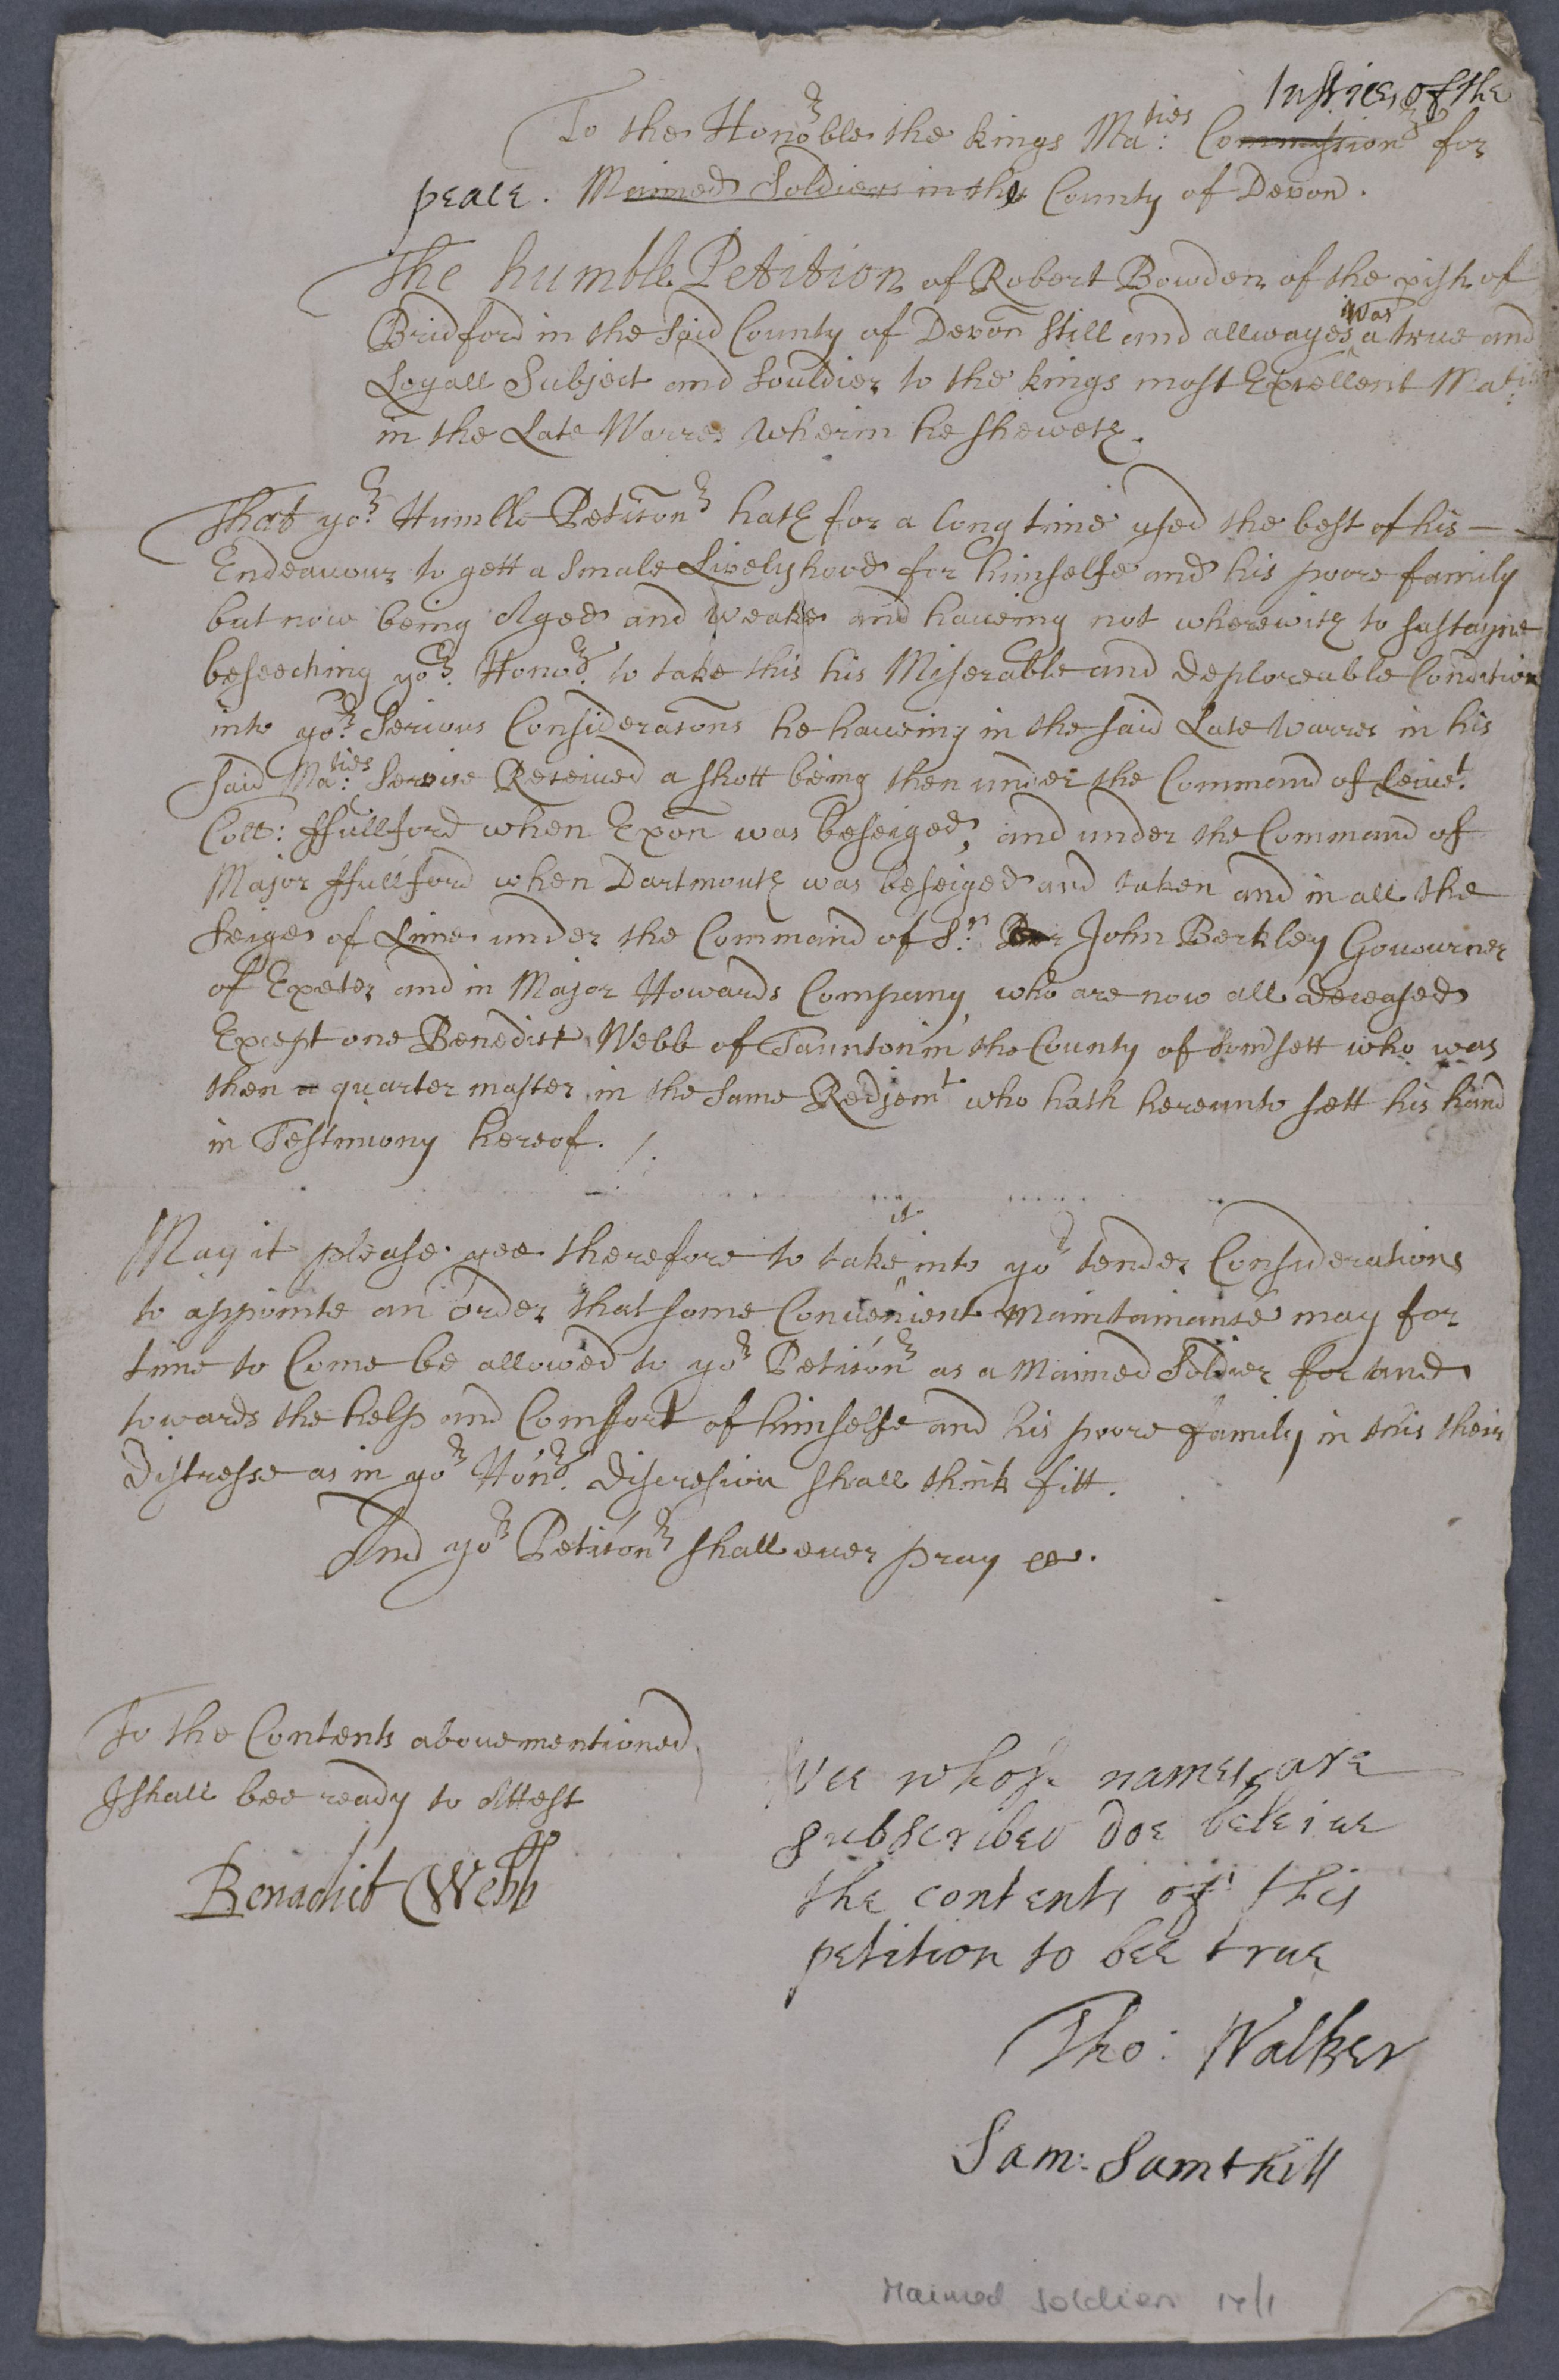 Justices of the
To the Honor:ble the kings Ma:ties Commission:rs for
peace. Maimed Soldiers in the County of Devon.
The humble Petition of Robert Bowden of the pish of
Bridford in the said County of Devon still and allwayes was a true and
Loyall Subject and souldier to the kings most Excellent Ma:tie
in the Late Warres Wherin he sheweth.
That yo:r Humble Petic̃oner hath for a long time used the best of his
Endeavour to gett a smale Livelyhood for himselfe and his poore family
but now being Aged and weake and haueing not wherewith to sustayne
beseeching yo:r Hono:rs to take this his Miserable and deploreable Condition
into yo:r Serious Considerac̃ons he haueing in the said Late Warres in his
said Ma:ties Service Received a shott being then under the Command of Leiuet
Coll: ffullford when Exon was beseiged, and under the Command of
Major ffullford when Dartmouth was beseiged and taken and in all the
seige of Lime under the Command of S:r John Berkley Gouourner
of Exeter and in Major Howards Company who are now all deceased
Except one Benedict Webb of Taunton in the County of Somersett who was
then a quarter master in the same Redjemt who hath hereunto sett his hand
in Testimony hereof. /.
May it please yee therefore to take it into yor tender Considerations
to appointe an order that some Convenient Maintainanse may for
time to Come be allowed to yor Petic̃oner as a Maimed Soldier for and
towards the help and Comfort of himselfe and his poore family in this their
Distresse as in yor Honrs: discresion shall think fitt.
And yor Petic̃oner shall ever pray &c.
To the Contents abovementioned
I shall bee ready to Attest
Benadict Webb
Wee whose names are
subscribed doe beleive
the contents of this
petition to bee true
Tho: Walker
Sam: Samthill
Maimed soldiers 17/1